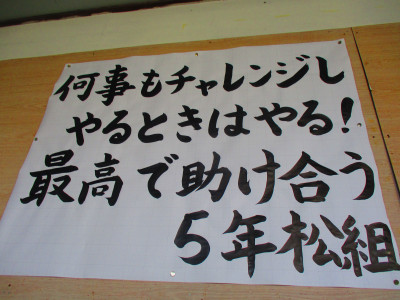 何事もチャレンジし
やるときはやる!
最高で助け合う
5年松組